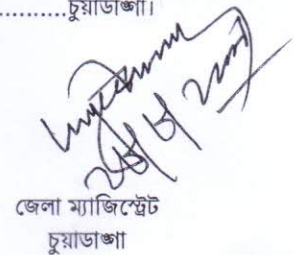 ..........চুয়াডাঙ্গা।
জেলা ম্যাজিস্ট্রেট
চুয়াডাঙ্গা